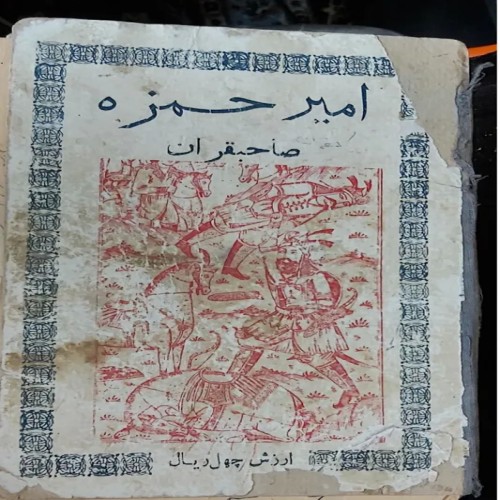 امیر حمزه
صاحبقران
ارزش چهل ریال